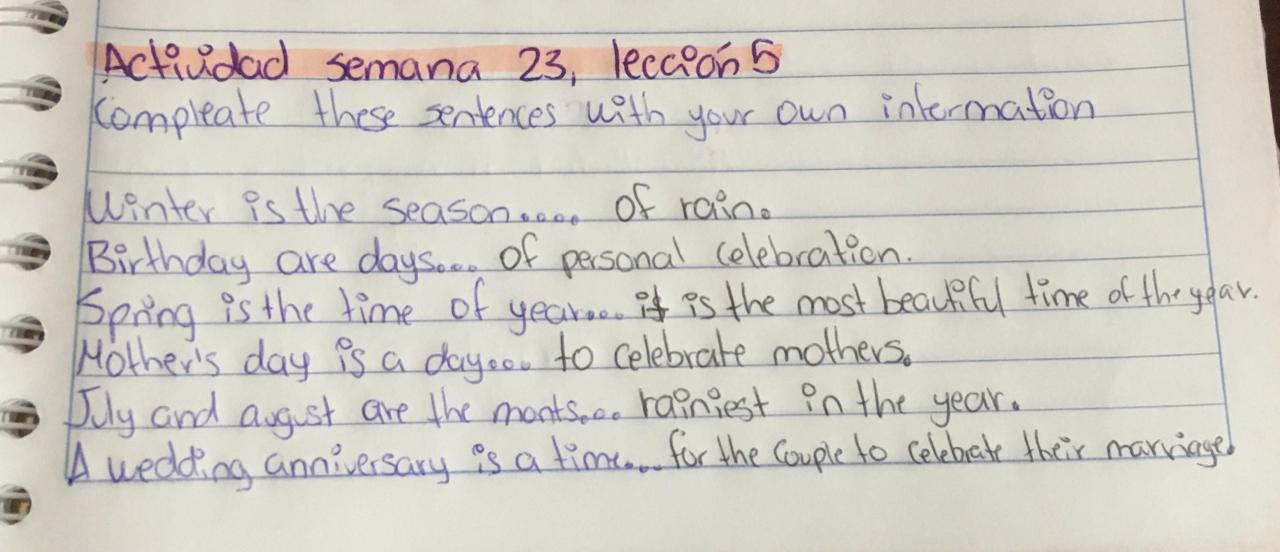 Actividad semana 23, lección 5
Compleate these sentences with your own information
Winter is the season.... of rain.
Birthday are days.... of personal celebration.
Spring is the time of year.... it is the most beautiful time of the year.
Mother's day is a day.... to celebrate mothers.
July and august are the monts.... rainiest in the year.
A wedding anniversary is a time.... for the couple to celebrate their marriage.